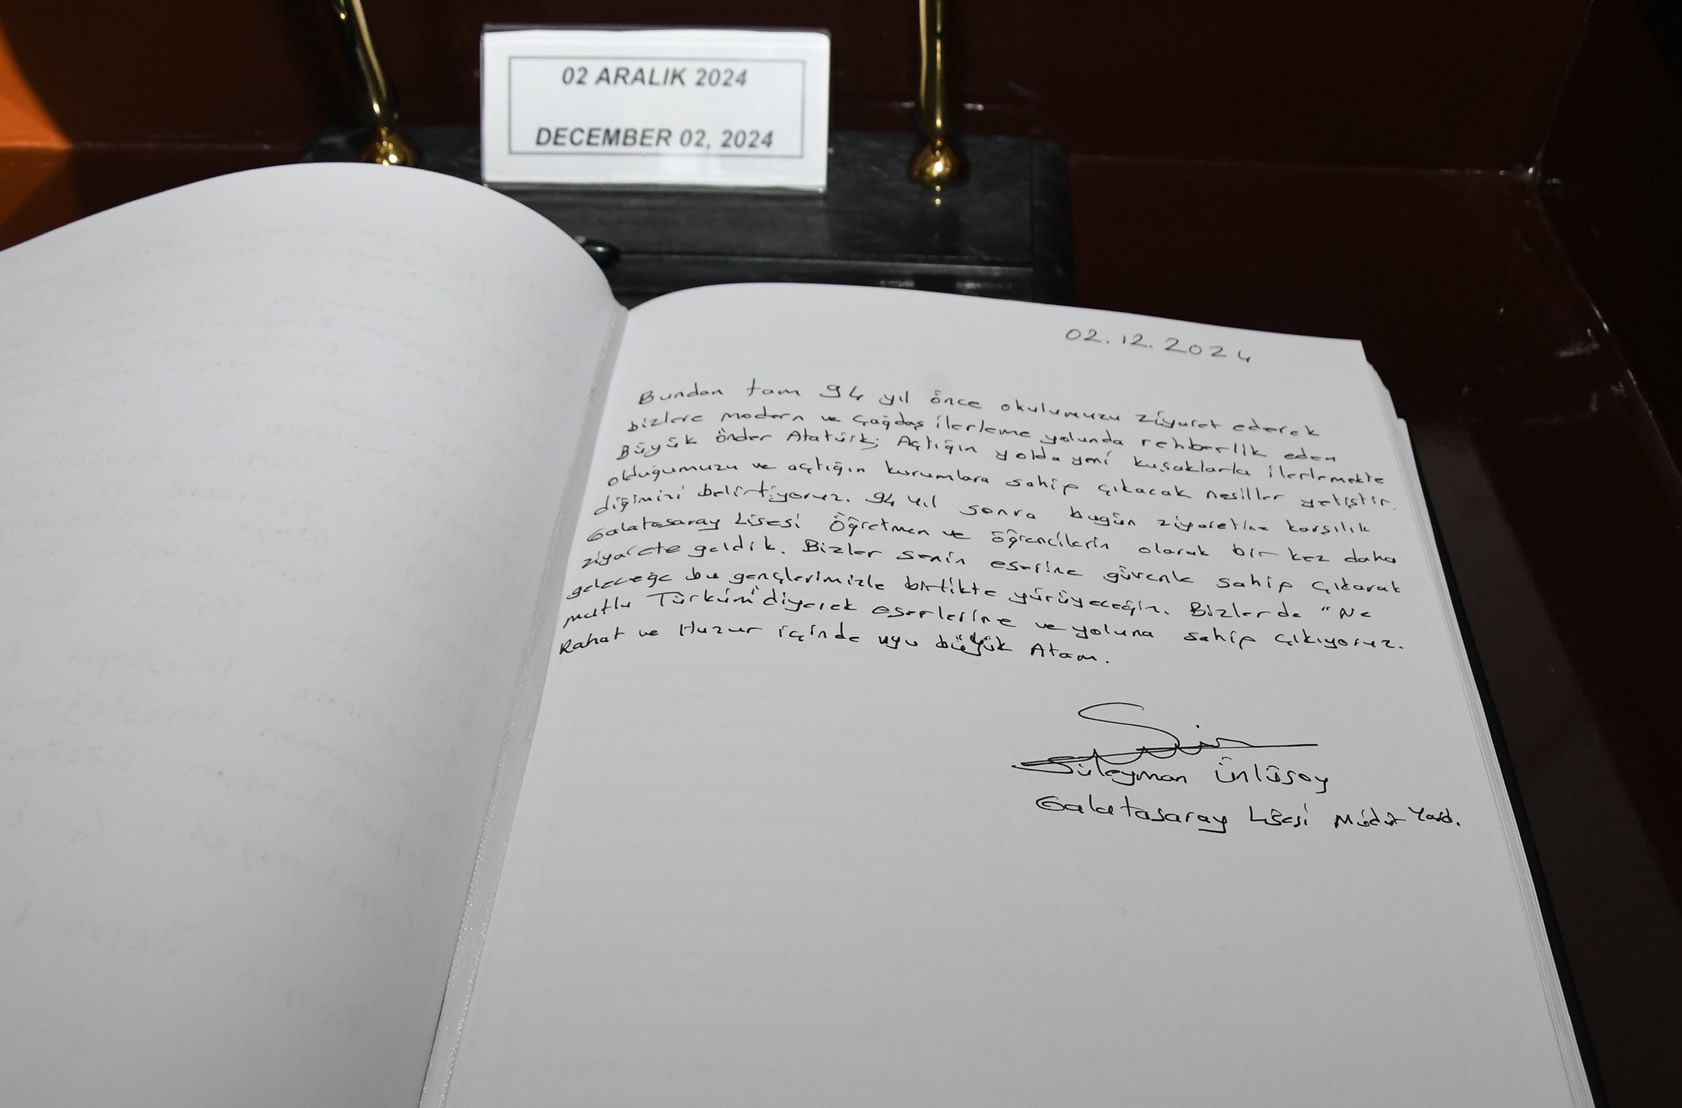 02 ARALIK 2024
DECEMBER 02, 2024
02.12.2024
Bundan tam 94 yıl önce okulumuzu ziyaret ederek
bizlere modern ve çağdaş ilerleme yolunda rehberlik eden
Büyük önder Atatürk; Açtığın yolda yeni kuşaklarla ilerlemekte
olduğumuzu ve açtığın kurumlara sahip çıkacak nesiller yetiştir
diğimizi belirtiyoruz. 94 yıl sonra bugün ziyaretine karşılık
Galatasaray Lisesi Öğretmen ve öğrencilerin olarak bir kez daha
ziyarete geldik. Bizler senin eserine güvenle sahip çıkarak
geleceğe bu gençlerimizle birlikte yürüyeceğin. Bizlerde "Ne
mutlu Türküm" diyerek eserlerine ve yoluna sahip çıkıyoruz.
Rahat ve Huzur içinde uyu büyük Atam.
Süleyman Ünlüsoy
Galatasaray Lisesi Müdür Yard.